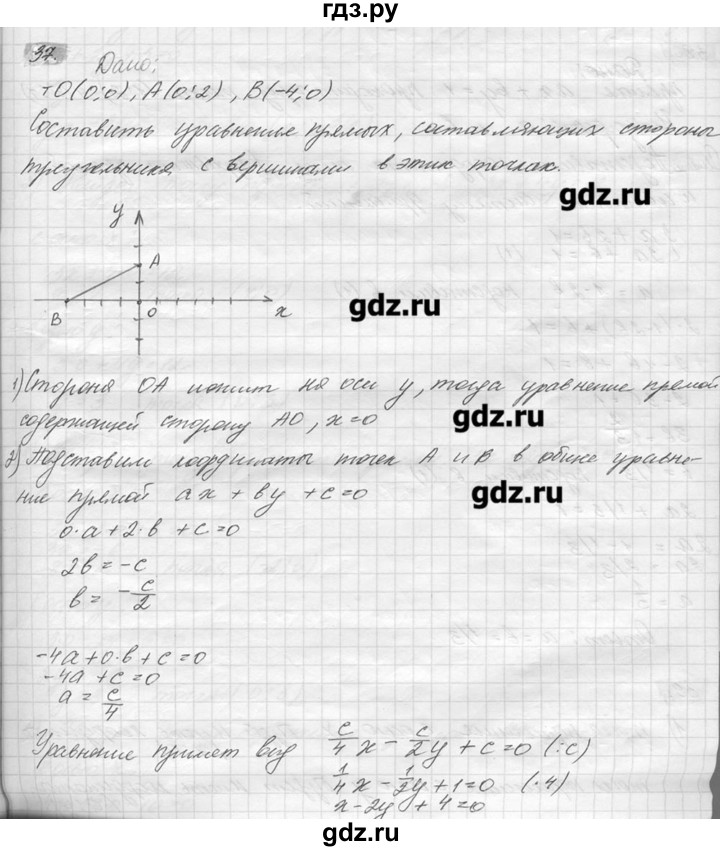 гдз.ру
37.
Дано:
тО(0;0), А(0;2), В(-4;0)
Составить уравненье прямых, составляющих стороны
треугольника с вершинами в этих точках.
gdz.ru
у
А
В
О
х
gdz.ru
1) Сторона ОА лежит на оси у, тогда уравнение прямой
содержащей сторону АО, x=0
gdz.ru
2) Подставим координаты точек А и В в общее уравне-
ние прямой ax + by + c = 0
gdz.ru
0·a + 2·b + c = 0
2b = -c
b = -c/2
-4a + 0·b + c = 0
-4a + c = 0
a = c/4
Уравнение примет вид c/4 x - c/2 y + c = 0 (:c)
1/4 x - 1/2 y + 1 = 0 (·4)
x - 2y + 4 = 0
gdz.ru